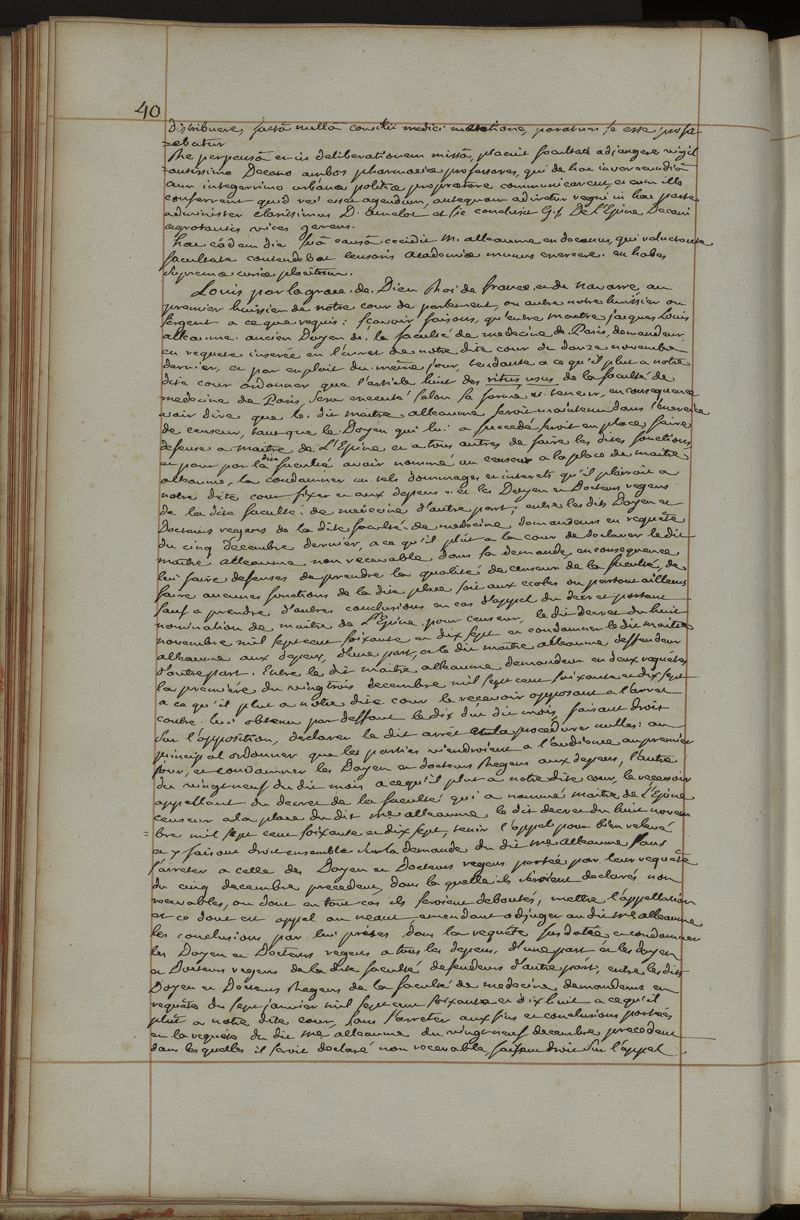 40
distribuere, factâ nullâ consilii medici mentione, paratum se esse profi
=tebatur
Re perpensâ et in deliberationem missâ, placuit facultati adjungere vigil
=antissimo Decano ambos pharmaciæ professores, qui de hac inverecundiâ
cum integerrimo urbanæ politiæ proprætore communicarent, et cum illo
conferrent quid rei esset agendum, antequam adiretur regni in hac parte
administer clarissimus D. amelot et sic conclusit G. J. De L'Epine Decani
ægrotantis vices gerens.
hac eâdem die suâ causâ cecidit M. alleaume en decanus, qui reluctante
facultate contendebat censoris academiæ munus exercere. en habes
supremæ curiæ placitum.
Louis par la grace de Dieu Roi de france et de navarre, au
premier huissier de notre cour de parlement, ou autre notre huissier ou
sergent a ce que requis: sçavoir faisons, qu'entre maitre jacques Louis
alleaume ancien Doyen de la faculté de medecine de Paris, demandeur
en requete inserée en l'arret de notre dite cour du douze novembre
dernier, et par exploit du même jour, tendante a ce qu'il plut a notre
dite cour ordonner que l'article huit des ritus usus de la faculté de
medecine de Paris, sera executé selon sa forme et teneur, en consequence
voir dire que le dit maitre alleaume seroit maintenu dans l'exercice
de censeur, tant que le Doyen qui lui a succedé seroit en place, faire
defense a maitre de L'Epine et a tous autres de faire les dites fonctions
et pour par la dite faculté avoir nommé un censeur a la place de maitre
alleaume, la condamner en tels dommages et interets qu'il plairoit a
notre dite cour fixer et aux depens. et les Doyen et Docteurs regens
de la dite faculté de medecine d'autre part; entre les dits Doyen et
Docteurs regens de la dite faculté de medecine demandeurs en requête
du cinq Decembre dernier, a ce qu'il plût a la cour de declarer le dit
maitre alleaume non recevable dans sa demande, en consequence
lui faire defenses de prendre la qualité de censeur de la faculté, de
faire aucunes fonctions de la dite place soit aux ecoles ou partout ailleurs
sauf a prendre d'autres conclusions en cas d'appel du decret portant
nomination de maitre de L'Epine pour censeur, le dit decret du huit
novembre mil sept cent soixante et dix sept et condamner le dit maitre
alleaume aux depens, d'une part, et le dit maitre alleaume deffendeur
d'autre part. Entre le dit maitre alleaume demandeur en deux requetes
la premiere du vingt trois decembre mil sept cent soixante et dix sept
a ce qu'il plut a notre dite cour le recevoir opposant a l'arret
contre lui obtenu par deffaut le dix du dit mois, faisant droit
sur l'opposition, declarer le dit arrêt et la procedure nulles: au
principal ordonner que les parties viendroient a l'audience au premier
jour, et condamner les Doyen et docteurs Regens aux depens, l'autre
du vingt neuf du dit mois a ce qu'il plut a notre dite cour, le recevoir
appellant du decret de la faculté qui a nommé maitre de L'Epine
censeur a la place du dit me alleaume le dit decret du huit novem
=bre mil sept cent soixante et dix sept, tenir l'appel pour bien relevé
et y faisant droit ensemble sur la demande du dit me alleaume sans
s'arreter a celle des Doyen et Docteurs regens portée par leur requete
du cinq decembre precedent, dans la quelle ils seroient declarés non
recevables, ou dont en tout cas ils seroient deboutés, mettre l'appellation
et ce dont est appel au neant, emendant adjuger au dit me alleaume
les conclusions par lui prises dans la requête susdatée et condamner
les Doyen et Docteurs regens a tous les depens. d'une part et les doyen
et Docteurs regens de la dite faculté defendeurs d'autre part; entre les dits
Doyen et Docteurs Regens de la faculté de medecine demandeurs en
requête du sept janvier mil sept cent soixante et dix huit a ce qu'il
plût a notre dite cour, sans s'arreter aux fins et conclusions portées
en la requete du dit me alleaume du vingt neuf decembre precedent
dans les quelles il seroit declaré non recevable, faisant droit sur l'appel